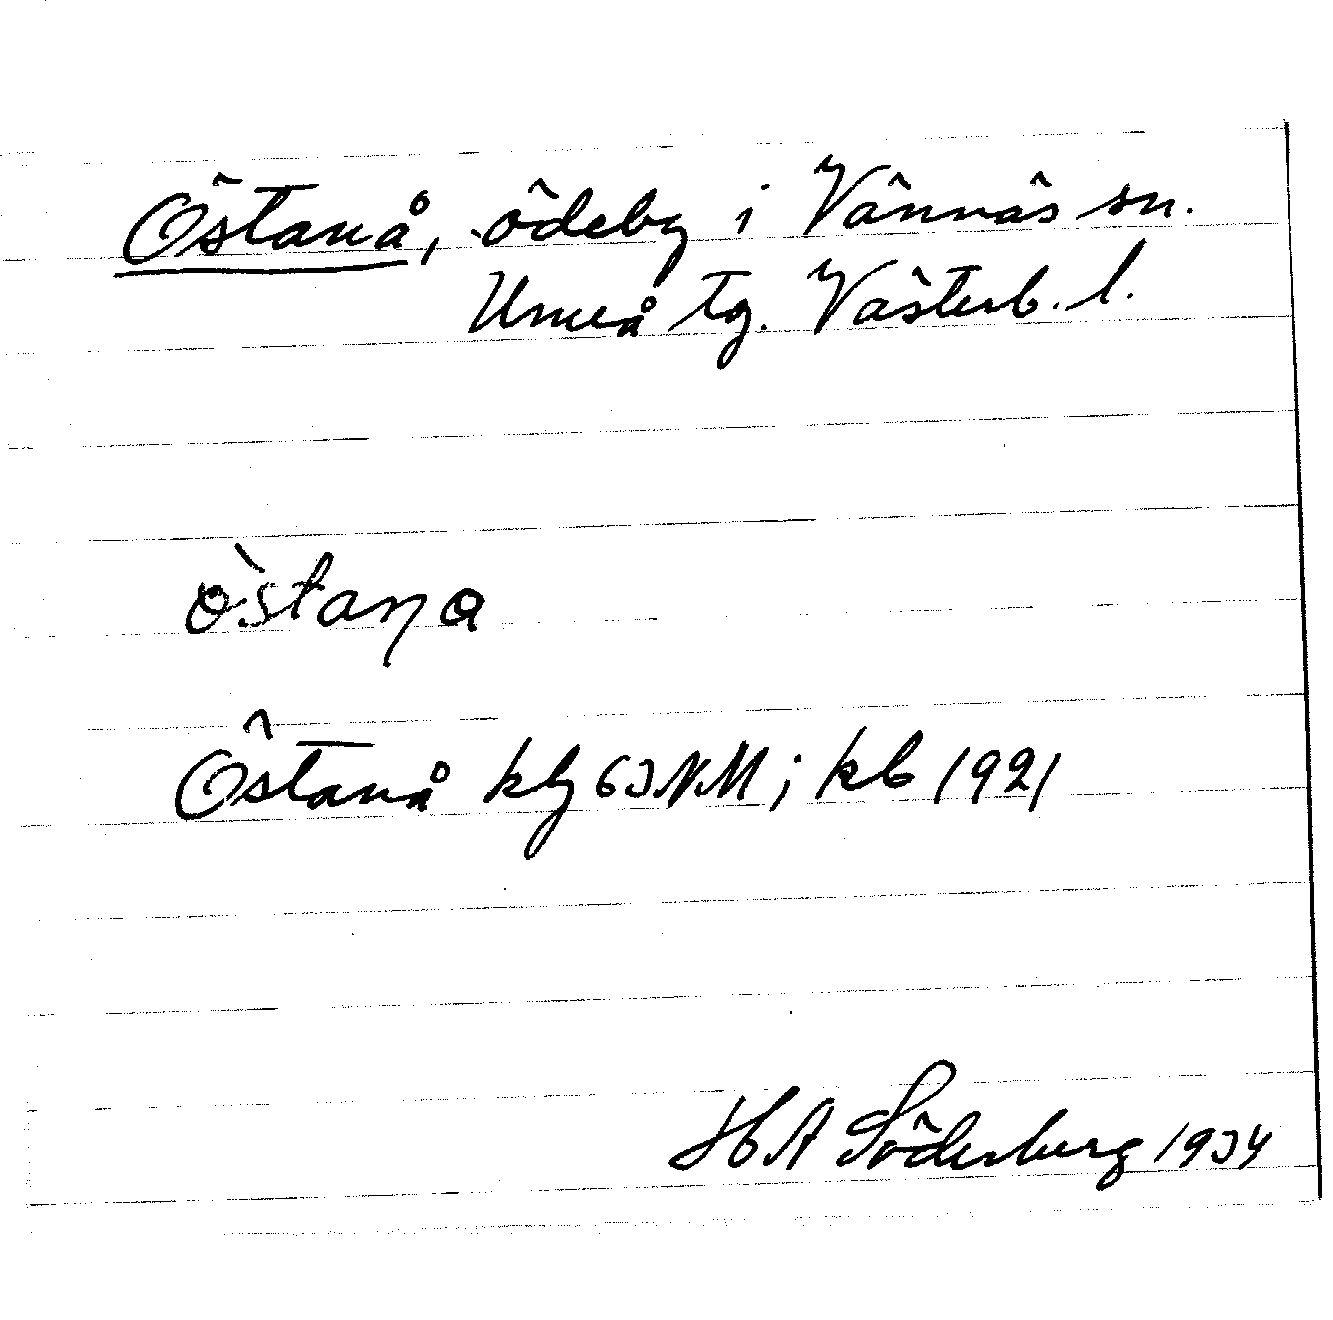 Östanå, ödeby i Vännäs sn.
Umeå tg. Västerb. l.
òstaŋa
Östanå kbg 63 NM; kb 1921
H A Söderberg 1934